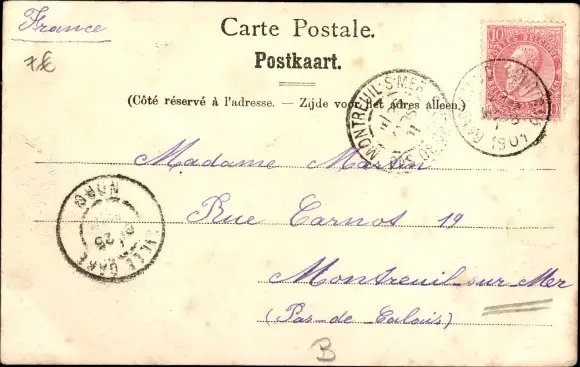 France
7€
Carte Postale.
Postkaart.
(Côté réservé à l'adresse. — Zijde voor het adres alleen.)
10
MONTREUIL-S-MER
1901
Madame Martin
Rue Carnot 19
Montreuil sur Mer
(Pas de Calais)
NORD
25
LILLE GARE
B